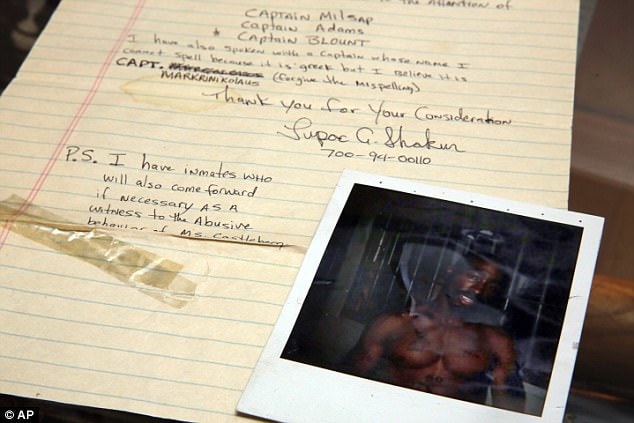 the Attention of
CAPTAIN MILSAP
CAPTAIN ADAMS
CAPTAIN BLOUNT
I have also spoken with a Captain whose name I
cannot spell because it is greek but I believe it is
CAPT.
MARKRINIKOLAUS (forgive the mispelling)
Thank you for Your Consideration
Tupac A. Shakur
700-94-00110
P.S. I have inmates who
will also come forward
if necessary AS A
witness to the Abusive
behavior of Ms. Castleberry
© AP